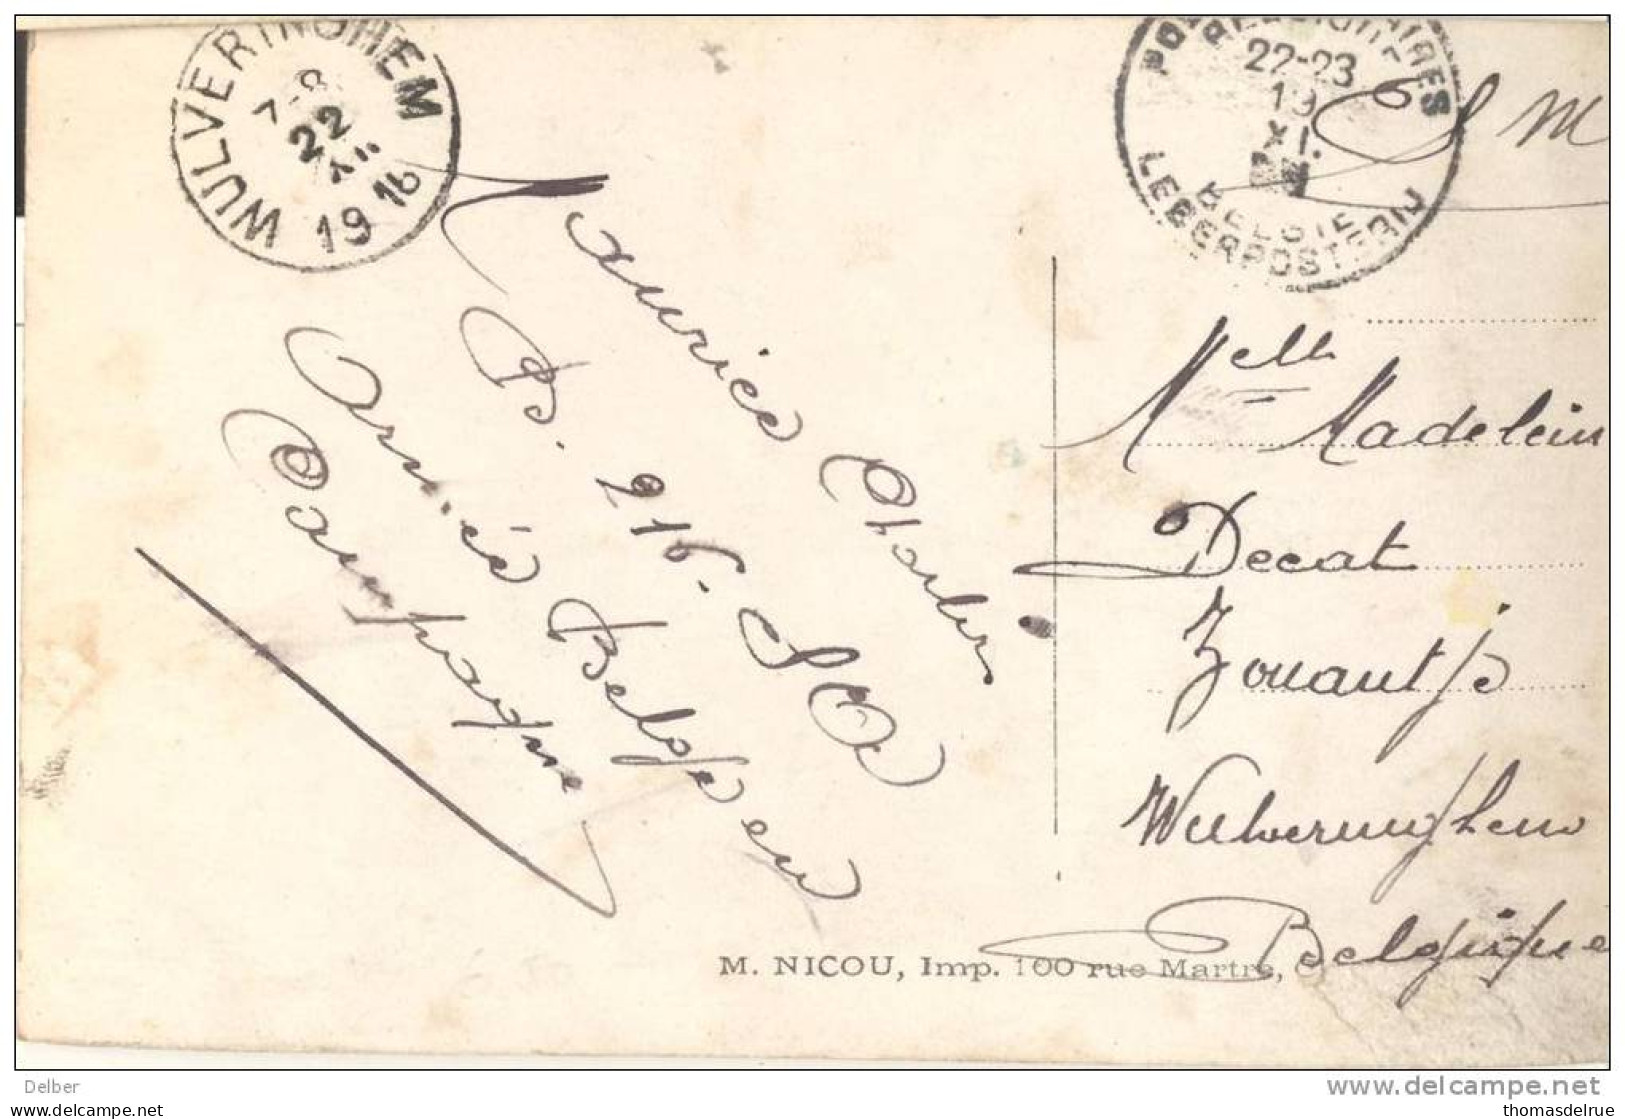 WULVERINGHEM
7-8
22
XII
1916
POSTES MILITAIRES
BELGIQUE
22-23
19
XI
BELGIE
LEGERPOSTERIJ
S M
Maurice Charlier
B. 216. S O
Armée Belge en
Campagne
Melle Madelein
Decat
Zouautje
Wulveringhem
Belgique
M. NICOU, Imp. 100 rue Martre, C
Delber
delcampe.net
thomasdelrue